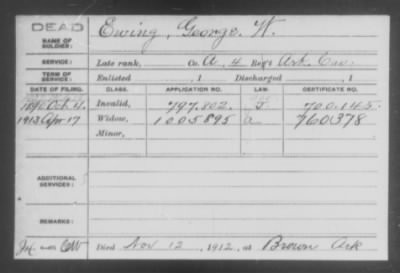 DEAD
NAME OF SOLDIER: Ewing, George W.
SERVICE: Late rank, Co. A, 4 Reg't Ark Cav.
TERM OF SERVICE: Enlisted , 1 Discharged , 1
DATE OF FILING. CLASS. APPLICATION NO. LAW. CERTIFICATE NO.
1890 Oct 4. Invalid, 797.802. 700.145.
1913 Apr 17 Widow, 1005895 a 760378
Minor,
ADDITIONAL SERVICES:
REMARKS:
Died Nov 12, 1912, at Brown Ark